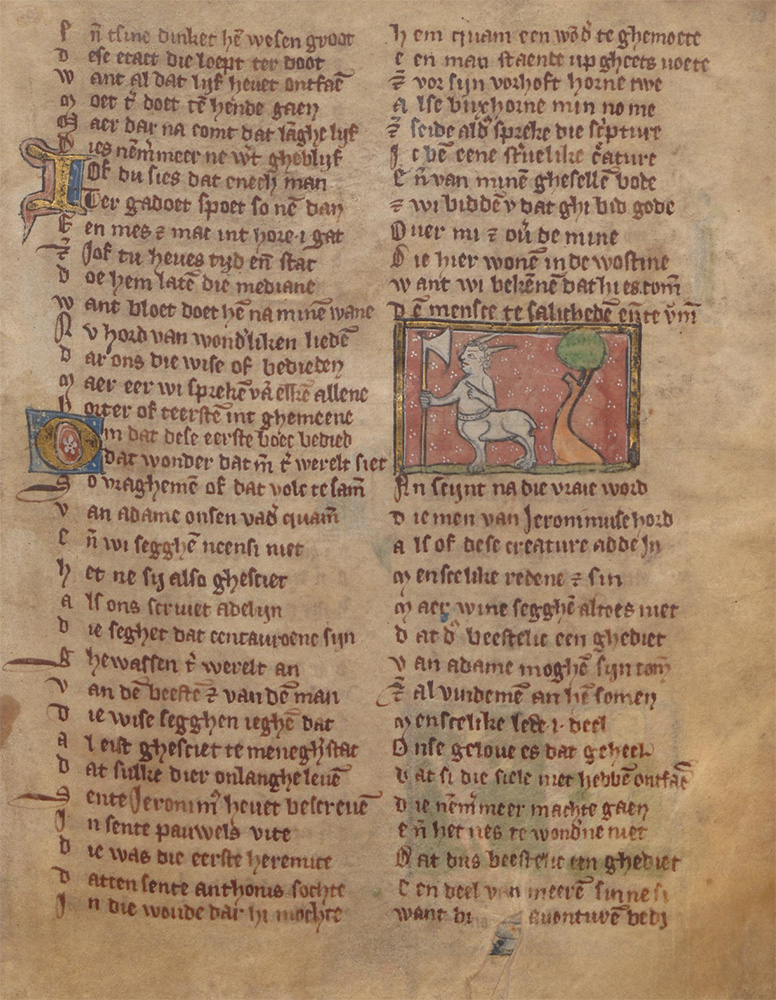 E n̄ tsine dinket hē wesen groot
D ese etaet die loept ter doot
W ant al dat lijf heuet ontfaē
M oet t̉ doet tē hende gaen
M aer dar na comt dat lāghe lijf
D ies nēm̉meer ne w̉t ghebliif
I Of du sies dat enech man
Ter gadoet spoet so nē dan
E en mes ⁊ mac int hore .i. gat
⁊ Jof tu heues tijd en̄ stat
D oe hem latē die mediane
W ant bloet doet hē na minē wane
N v hord van wond̉liken liedē
D ar ons die wise of bedieden
M aer eer wi sprekē vā elkē allene
H orter of teerstē int ghemeene
O m dat dese eerste boec bedied
dat wonder dat m̄ t̉ werelt siet
S o vraghemē of dat volc te samē
V an adame onsen vad̉ quam̄
E n̄ wi segghē neensi niet
H et ne sij also ghesciet
A ls ons scriuet adelijn
D ie seghet dat centauroene sijn
G hewassen t̉ werelt an
V an dē beestē ⁊ van dē man
D ie wise segghen ieghē dat
A l eist ghesciet te menegh̉ stat
D at sulke dier onlanghe leuē
S ente Jeronim̉ heuet bescreuē
I n sente pauwels vite
D ie was die eerste heremite
D atten sente anthonis sochte
I n die woude dar hi mochte
H em quam een wōd̉ te ghemoete
E en man staende up gheets uoete
⁊ vor sijn vorhoft horne twe
A lse buxhorne min no me
⁊ seide ald̉ spreke die sc̉pture
I c bē eene st̉uelike c̉ature
E n̄ van minē ghesellē bode
⁊ wi biddē v dat ghi bid gode
Ouer mi ⁊ oủ de mine
D ie hier wonē in de wostine
W ant wi bekēnē dat hi es com̄
D ē mensce te salichedē en̄ te vm̄
A n scijnt na die vraie word
D ie men van Jeronimuse hord
A ls of dese creature adde in
M enscelike redene ⁊ sin
M aer wine segghē altoes niet
D at d̉ beestelic een ghediet
V an adame moghē sijn com̄
⁊ al vindemē an hē somen
M enscelike lett .i. deel
Onse geloue es dat geheel
D at si die siele niet hebbē ontfaē
D ie nēm̉meer machte gaen
E n̄ het nes te wondne niet
D at dus beestelic een ghediet
E en deel van meerē sinne si
want bi auonturē bedi